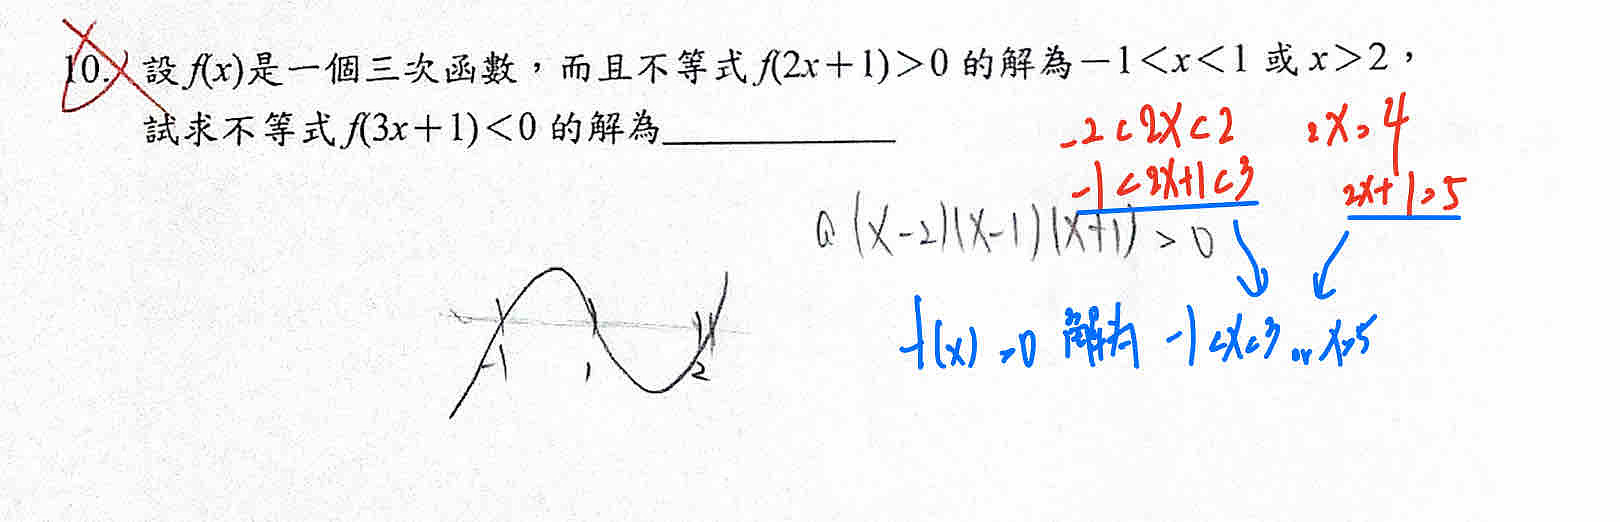 10. 設f(x)是一個三次函數，而且不等式f(2x＋1)＞0 的解為－1＜x＜1 或 x＞2，
試求不等式f(3x＋1)＜0 的解為
-2<2x<2 2x>4
-1<2x+1<3 2x+1>5
a(x-2)(x-1)(x+1)>0
f(x)>0 解為 -1<x<3 or x>5
-1 1 2